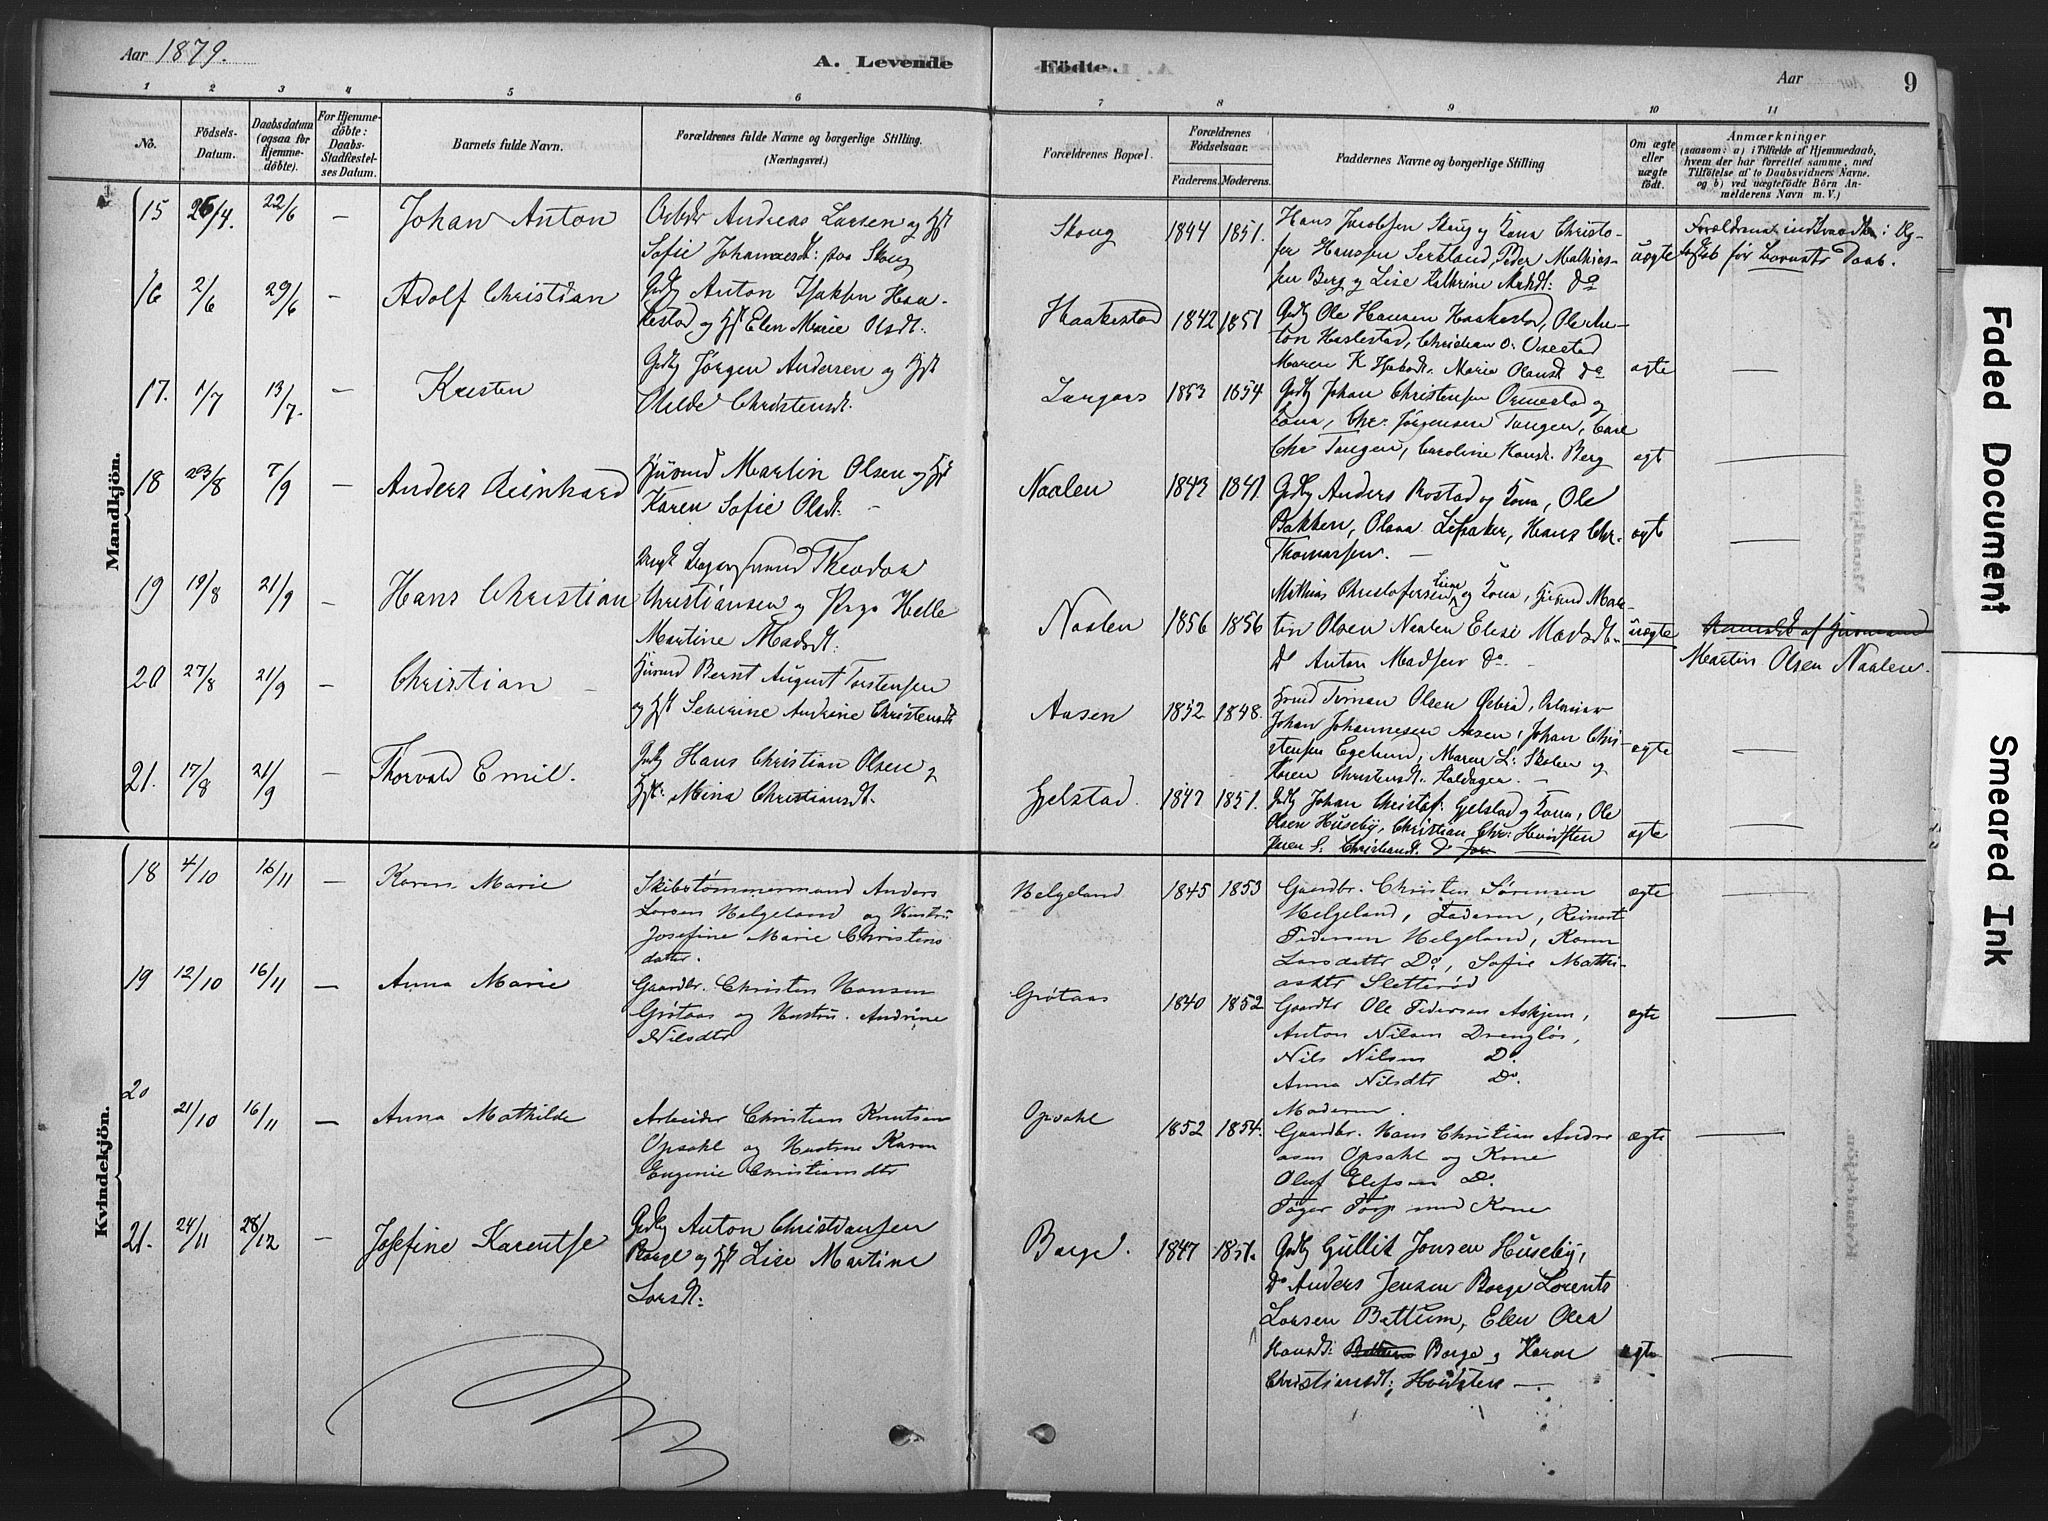 Aar 1879.
A. Levende Födte.
Aar
9
1 2 3 4 5 6 7 8 9 10 11
No.
Födsels-
Datum.
Daabsdatum
(ogsaa for
Hjemme-
döbte).
For Hjemme-
döbte:
Daabs-
Stadfæstel-
ses Datum.
Barnets fulde Navn.
Forældrenes fulde Navne og borgerlige Stilling.
(Næringsvei.)
Forældrenes Bopæl.
Forældrenes
Födselsaar.
Faderens. Moderens.
Faddernes Navne og borgerlige Stilling
Om ægte
eller
uægte
födt.
Anmærkninger
(saasom: a) i Tilfælde af Hjemmedaab,
hvem der har forrettet samme, med
Tilföielse af to Daabsvidners Navne,
og b) ved uægtefödte Börn An-
melderens Navn m. V.)
Mandkjön.
15 26/4. 22/6 — Johan Anton
Andreas Larsen og
Sofie Johannesdt: paa Skoug
Skoug 1844 1851.
Hans Jacobsen Skoug og Kona Christo-
fer Hanssen Serkland, Peder Mathias-
sen Berg og Lise Kathrine Do
uægte
før Barnets Daab.
16 2/6 29/6 — Adolf Christian
Gdb Anton Isaksen Haa-
kestad og Hst Elen Marie Olsdt.
Haakestad 1842 1851
Gdb Ole Hansen Haakestad, Ole An-
ton Haslestad, Christian O.
Maren K Maria Olausd Do
ægte —
17. 1/7 13/7. — Kristen
Gdb Jørgen Andersen og Hst
Olilde Christensdt.
1853 1854
Gdb Johan Christensen Ormestad og
Kona, Chr. Jørgensen Tangen, Carl
Chr Tangen, Caroline Hansd. Berg
ægt —
18 23/8 7/9 — Anders Reinhard
Martin Olsen og Hst
Karen Sofie Olsdt. —
Naalen 1843 1841.
Gdb Anders Rostad og Kona, Ole
Bakken, Olava Lefsaker, Hans Chr.
Thomassen. —
ægte —
19 19/8 21/9 — Hans Christian
Theodor
Christiansen og Pige Helle
Martine Madsdt.
Naalen 1856 1856
Mathias Christofersen og Kona, Mar-
tin Olsen Naalen Elise Madsdt.
Do Anton Madsen Do —
uægte
Martin Olsen Naalen.
20 27/8 21/9 — Christian —
Bernt August Torstensen
og Hst Severine Andrine Christensdt
Aasen 1852 1848.
Olsen
Johan Johannesen Aasen, Johan Chri-
stensen Egelund, Maren L. Skolen og
Karen Christensdt. Haldager. —
ægte —
21. 17/8 21/9 — Thorvald Emil.
Gdb Hans Christian Olsen og
Hst: Mina Christiansdt.
Gjelstad. 1847 1851.
Gdb Johan Christof. Gjelstad og Kona, Ole
Olsen Huseby, Christian Chr. Hvidsten
Karen S. Christiansdt. Do
ægte —
Kvindekjön.
18 4/10 16/11 — Karen Marie
Skibstømmermand Anders
Larsen Helgeland og Hustru
Josefine Marie Christens
datter.
Helgeland 1845 1853
Gaardbr. Christen Sørensen
Helgeland, Faderen, Reinert
Pedersen Helgeland, Karen
Larsdatter Do, Sofie Mathi-
asdtr Sletterød
ægte —
19 12/10 16/11 — Anna Marie
Gaardbr. Christen Hansen
Grøtaas og Hustru. Andrine
Nilsdtr
Grøtaas 1840 1852
Gaardbr Ole Pedersen Askjem,
Anton Nilsen Drengløs,
Nils Nilsen Do.
Anna Nilsdtr Do.
Moderen.
ægte —
20 21/10 16/11 — Anna Mathilde
Arbeider Christian Knutsen
Opsahl og Hustru Karen
Eugenie Christiansdtr
Opsahl 1852 1854.
Gaardbr. Hans Christian Andre
asen Opsahl og Kone
Oluf Elefsen Do.
Torp med Kone
ægte —
21. 24/11 28/12 — Josefine Karentse
Gdb Anton Christiansen
Borge og Hst Lise Martine
Larsdt:
Borge. 1847 1851.
Gdb Gullik Jonsen Huseby,
Do Anders Jensen Borge Lorents
Larsen Battum, Elen Olea
Hansdt: Borge og Karen
Christiansdt; Hvidsten —.
ægte —
Faded Document
Smeared Ink